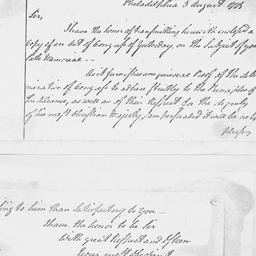 Philadelphia 3 August 1778
Sir,
I have the honor of transmitting herewith enclosed a
Copy of an Act of Congress of Yesterday, on the Subject of your
late Memorial --
As it furnishes unequivocal Proof of the deter
mination of Congress to adhere strictly to the Principles of
the alliance, as well as of their Respect for the dignity
of his most Christian Majesty, I am persuaded it will be no less
pleasing
ing to him than satisfactory to you --
I have the honor to be Sir
With great Respect and Esteem
Your most Obedient